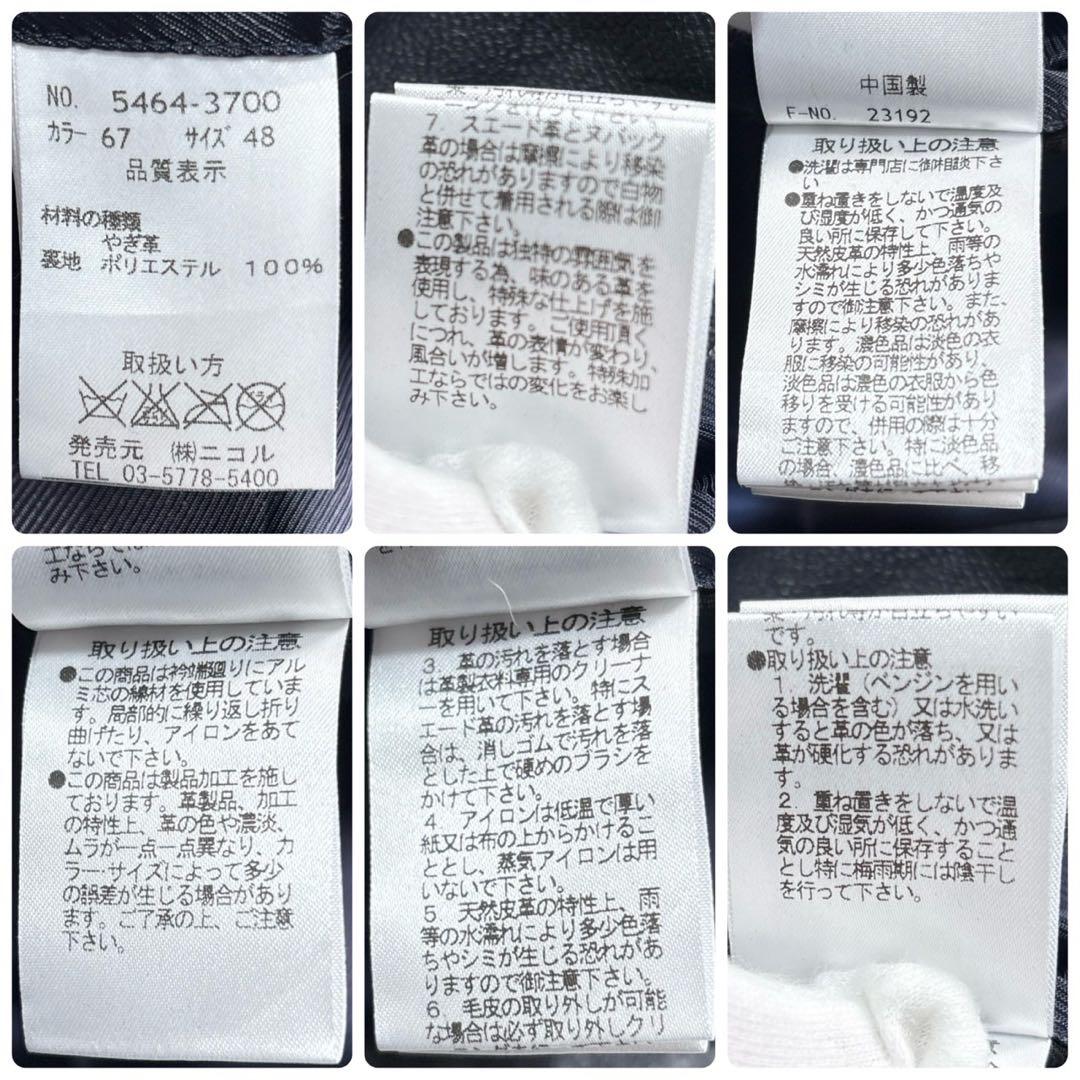 NO. 5464-3700
カラー 67 サイズ 48
品質表示
材料の種類
やぎ革
裏地 ポリエステル 100%
取扱い方
発売元 (株)ニコル
TEL 03-5778-5400
7. スエード革とヌバック
革の場合は摩擦により移染
の恐れがありますので白物
と併せて着用される際は御
注意下さい。
●この製品は独特の雰囲気を
表現する為、味のある革を
使用し、特殊な仕上げを施
しております。ご使用頂く
につれ、革の表情が変わり、
風合いが増します。特殊加
工ならではの変化をお楽し
み下さい。
中国製
F-NO. 23192
取り扱い上の注意
●洗濯は専門店に御相談下さ
い
●重ね置きをしないで温度及
び湿度が低く、かつ通気の
良い所に保存して下さい。
天然皮革の特性上、雨等の
水濡れにより多少色落ちや
シミが生じる恐れがありま
すので御注意下さい。また、
摩擦により移染の恐れがあ
ります。濃色品は淡色の衣
服に移染の可能性があり、
淡色品は濃色の衣服から色
移りを受ける可能性があり
ますので、併用の際は十分
ご注意下さい。特に淡色品
の場合、濃色品に比べ、移
工ならでは
み下さい。
取り扱い上の注意
●この商品は衿端廻りにアル
ミ芯の線材を使用していま
す。局部的に繰り返し折り
曲げたり、アイロンをあて
ないで下さい。
●この商品は製品加工を施し
ております。革製品、加工
の特性上、革の色や濃淡、
ムラが一点一点異なり、カ
ラー・サイズによって多少
の誤差が生じる場合があり
ます。ご了承の上、ご注意
下さい。
取り扱い上の注意
3. 革の汚れを落とす場合
は革製衣料専用のクリーナ
ーを用いて下さい。特にス
エード革の汚れを落とす場
合は、消しゴムで汚れを落
とした上で硬めのブラシを
かけて下さい。
4. アイロンは低温で厚い
紙又は布の上からかけるこ
ととし、蒸気アイロンは用
いないで下さい。
5. 天然皮革の特性上、雨
等の水濡れにより多少色落
ちやシミが生じる恐れがあ
りますので御注意下さい。
6. 毛皮の取り外しが可能
な場合は必ず取り外しクリ
です。
●取り扱い上の注意
1. 洗濯(ベンジンを用い
る場合を含む)又は水洗い
すると革の色が落ち、又は
革が硬化する恐れがありま
す。
2. 重ね置きをしないで温
度及び湿気が低く、かつ通
気の良い所に保存すること
とし特に梅雨期には陰干し
を行って下さい。